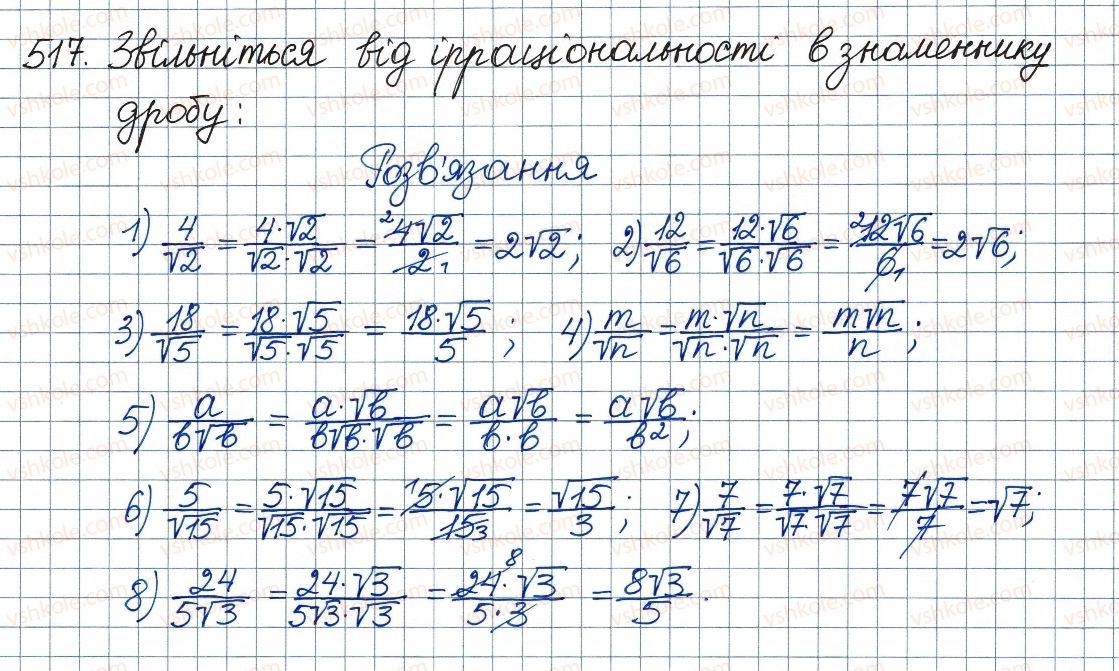 517. Звільніться від ірраціональності в знаменнику
дробу:
Розв'язання
1) 4/√2 = 4·√2/√2·√2 = ²4√2/2₁ = 2√2; 2) 12/√6 = 12·√6/√6·√6 = ²12√6/6₁ = 2√6;
3) 18/√5 = 18·√5/√5·√5 = 18·√5/5; 4) m/√n = m·√n/√n·√n = m√n/n;
5) a/b√b = a·√b/b√b·√b = a√b/b·b = a√b/b²;
6) 5/√15 = 5·√15/√15·√15 = ¹5·√15/15₃ = √15/3; 7) 7/√7 = 7·√7/√7 √7 = 7¹√7/7 = √7;
8) 24/5√3 = 24·√3/5√3·√3 = 24⁸·√3/5·3 = 8√3/5.